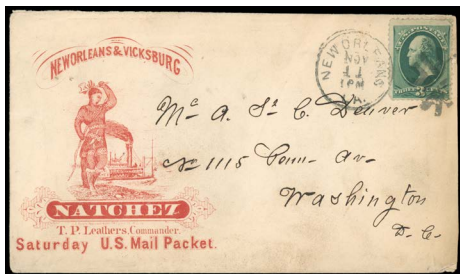 NEW ORLEANS & VICKSBURG
NATCHEZ
T. P. Leathers, Commander.
Saturday U.S. Mail Packet.
NEW ORLEANS
NOV
11
1PM
LA.
U.S. POSTAGE
THREE 3 CENTS
Mc A. St. C. Denver
No 1115 Penn. Av-
Washington
D. C-